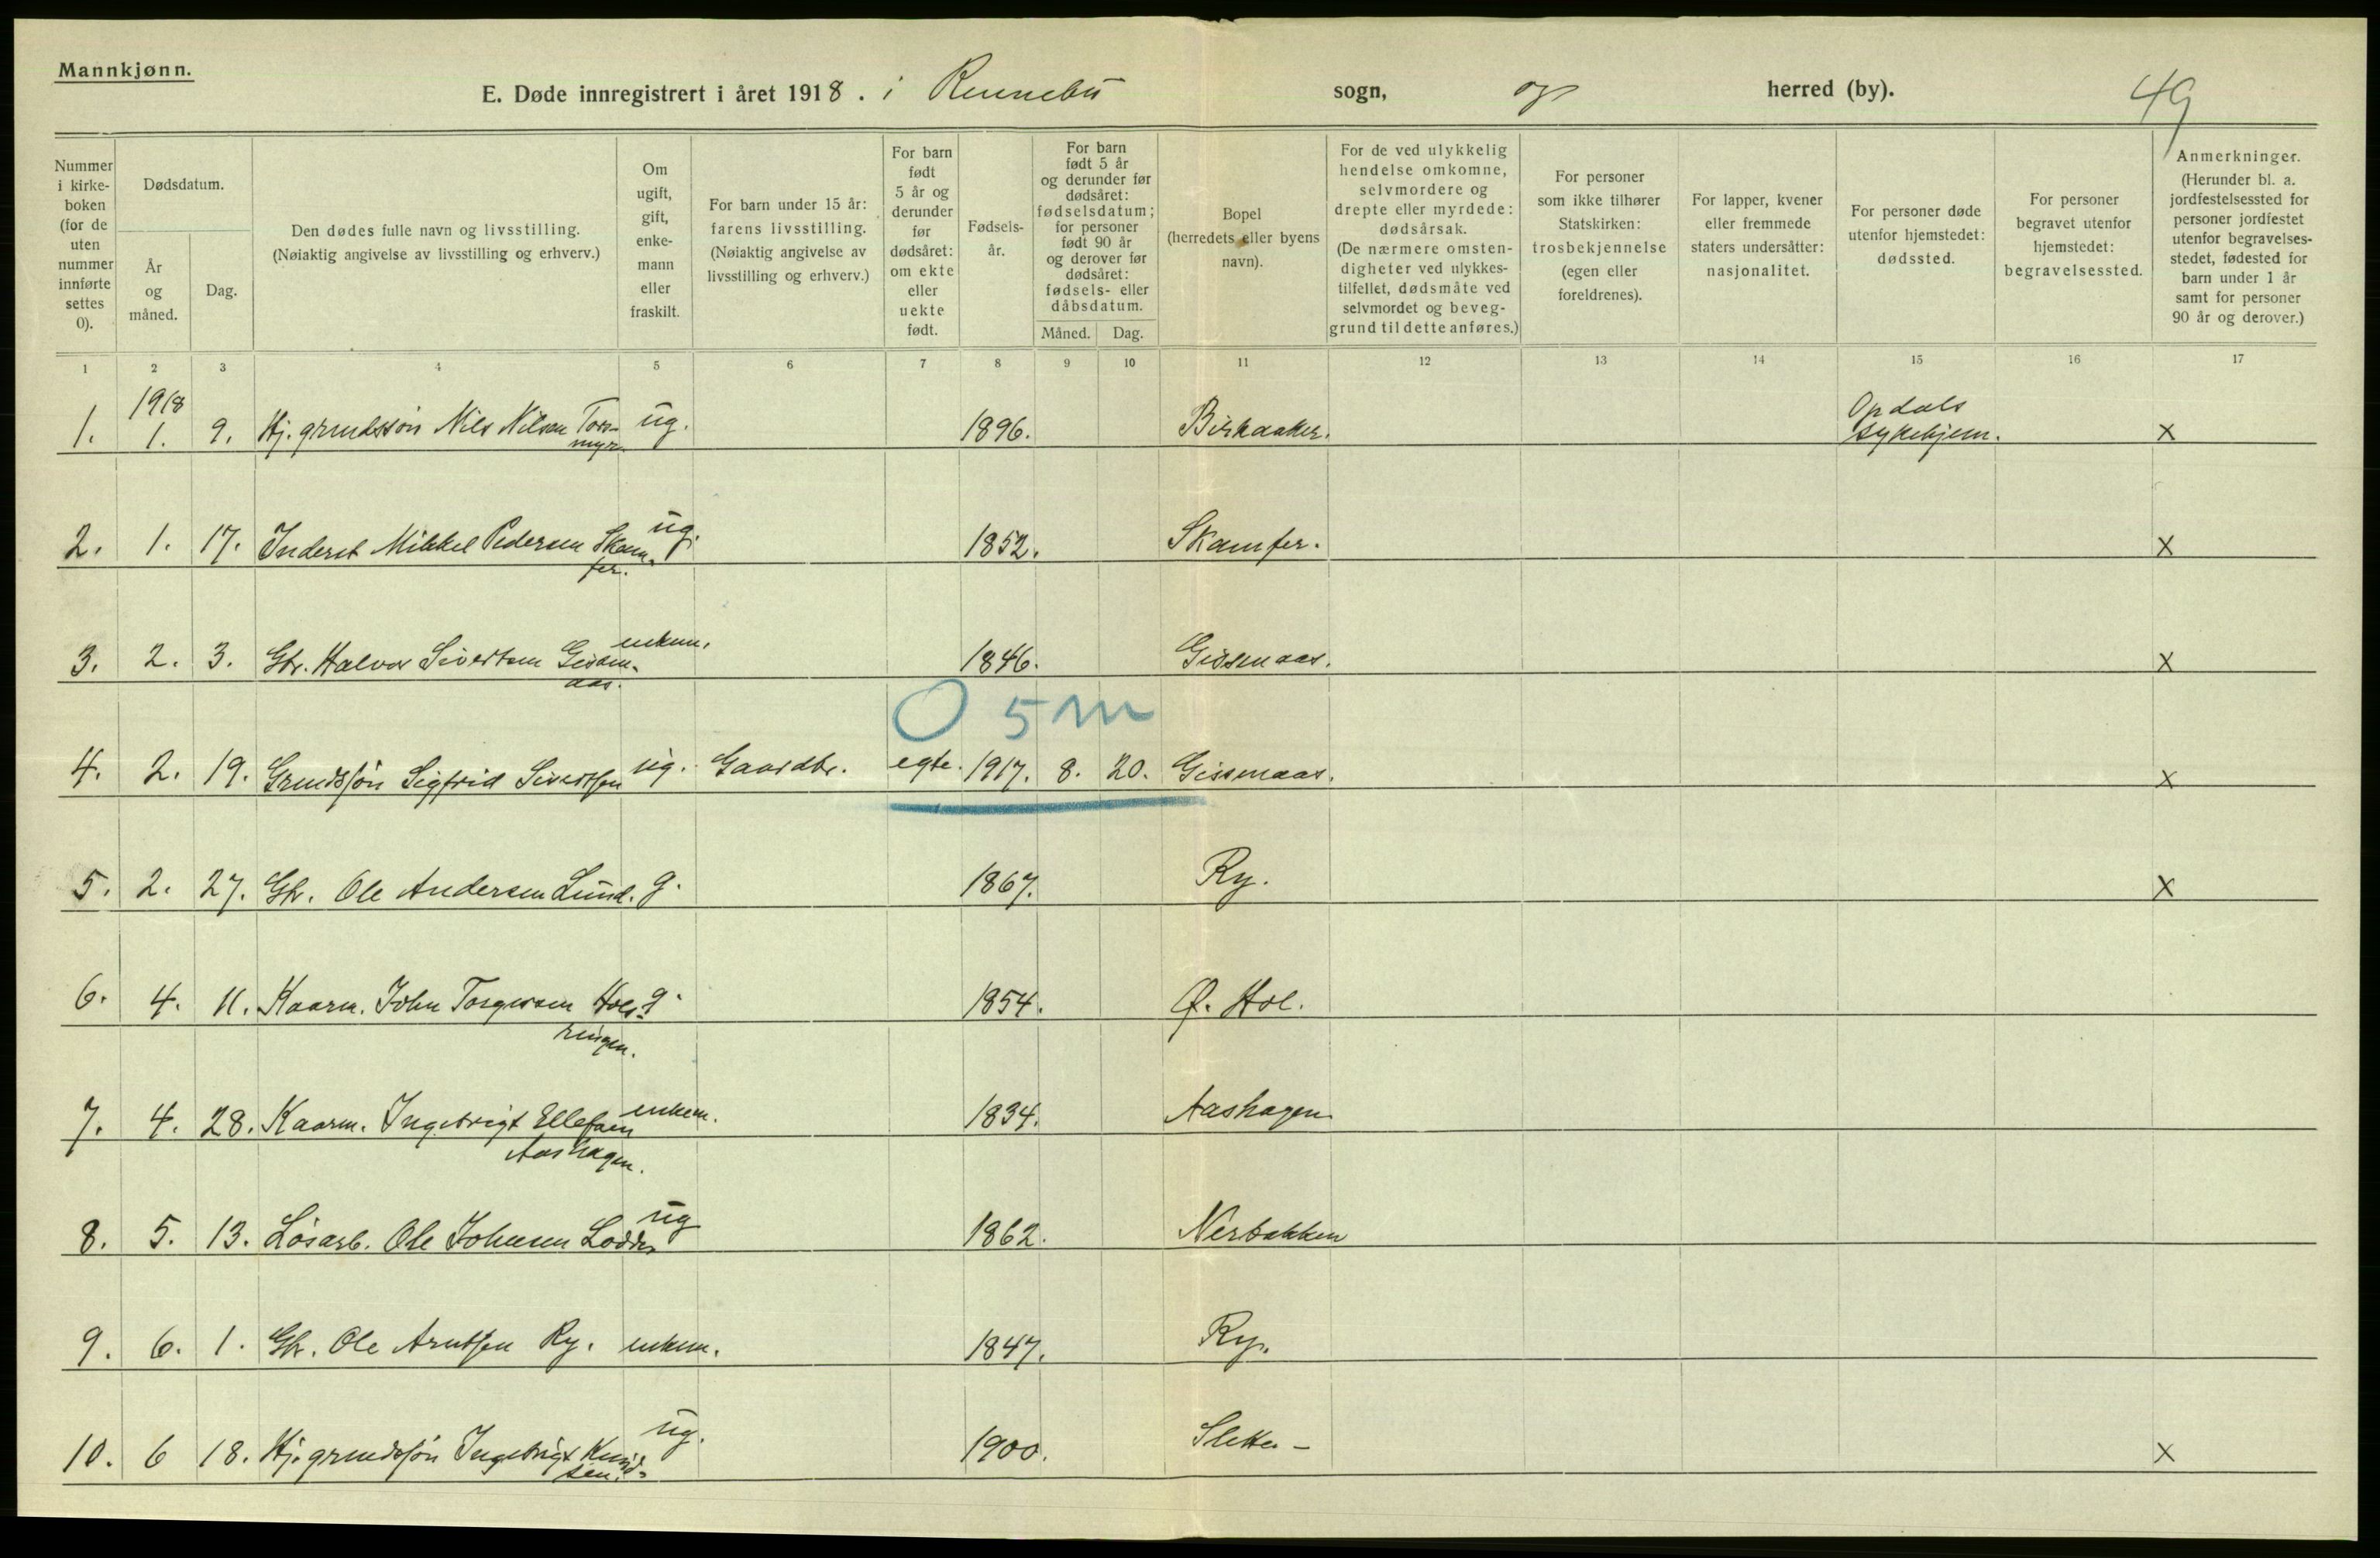 Mannkjønn.
E. Døde innregistrert i året 1918. i Rennebu sogn, og herred (by). 49
Nummer i kirke- boken (for de uten nummer innførte settes 0).
Dødsdatum.
År og måned.
Dag.
Den dødes fulle navn og livsstilling.
(Nøiaktig angivelse av livsstilling og erhverv.)
Om ugift, gift, enke- mann eller fraskilt.
For barn under 15 år: farens livsstilling. (Nøiaktig angivelse av livsstilling og erhverv.)
For barn født 5 år og derunder før dødsåret: om ekte eller uekte født.
Fødsels- år.
For barn født 5 år og derunder før dødsåret: fødselsdatum; for personer født 90 år og derover før dødsåret: fødsels- eller dåbsdatum.
Måned. Dag.
Bopel (herredets eller byens navn).
For de ved ulykkelig hendelse omkomne, selvmordere og drepte eller myrdede: dødsårsak. (De nærmere omsten- digheter ved ulykkes- tilfellet, dødsmåte ved selvmordet og beveg- grund til dette anføres.)
For personer som ikke tilhører Statskirken: trosbekjennelse (egen eller foreldrenes).
For lapper, kvener eller fremmede staters undersåtter: nasjonalitet.
For personer døde utenfor hjemstedet: dødssted.
For personer begravet utenfor hjemstedet: begravelsessted.
Anmerkninger. (Herunder bl. a. jordfestelsessted for personer jordfestet utenfor begravelses- stedet, fødested for barn under 1 år samt for personer 90 år og derover.)
1 2 3 4 5 6 7 8 9 10 11 12 13 14 15 16 17
1918
1. 1. 9. Hj. grmdssøn Nils Nilsen Tors- ug. 1896. Birkaaker. Opdals sykehjem. x
myr.
2. 1. 17. Inderst Mikkel Pedersen Skam- ug. 1852. Skamfer. x
fer.
3. 2. 3. Gbr. Halvor Sivertsen Gissm- enkem. 1846. Gissmaas. x
aas.
0 5 m
4. 2. 19. Grmdssøn Sigfrid Sivertsen ug. Gaardbr. egte. 1917. 8. 20. Gissmaas. x
5. 2. 27. Gbr. Ole Andersen Lund. g. 1867. Ry. x
6. 4. 11. Kaarm. John Torgersen Hol- g. 1854. Ø. Hol.
7. 4. 28. Kaarm. Ingebrigt Ellefsen enkem. 1834. Aashagen
Aashagen.
8. 5. 13. Løsarb. Ole Johnsen ug 1862. Nerbakken
9. 6. 1. Gbr. Ole Arntsen Ry. enkem. 1847. Ry.
10. 6 18. Hj. grmdssøn Ingebrigt Knud- ug. 1900. Sletter - x
sen.